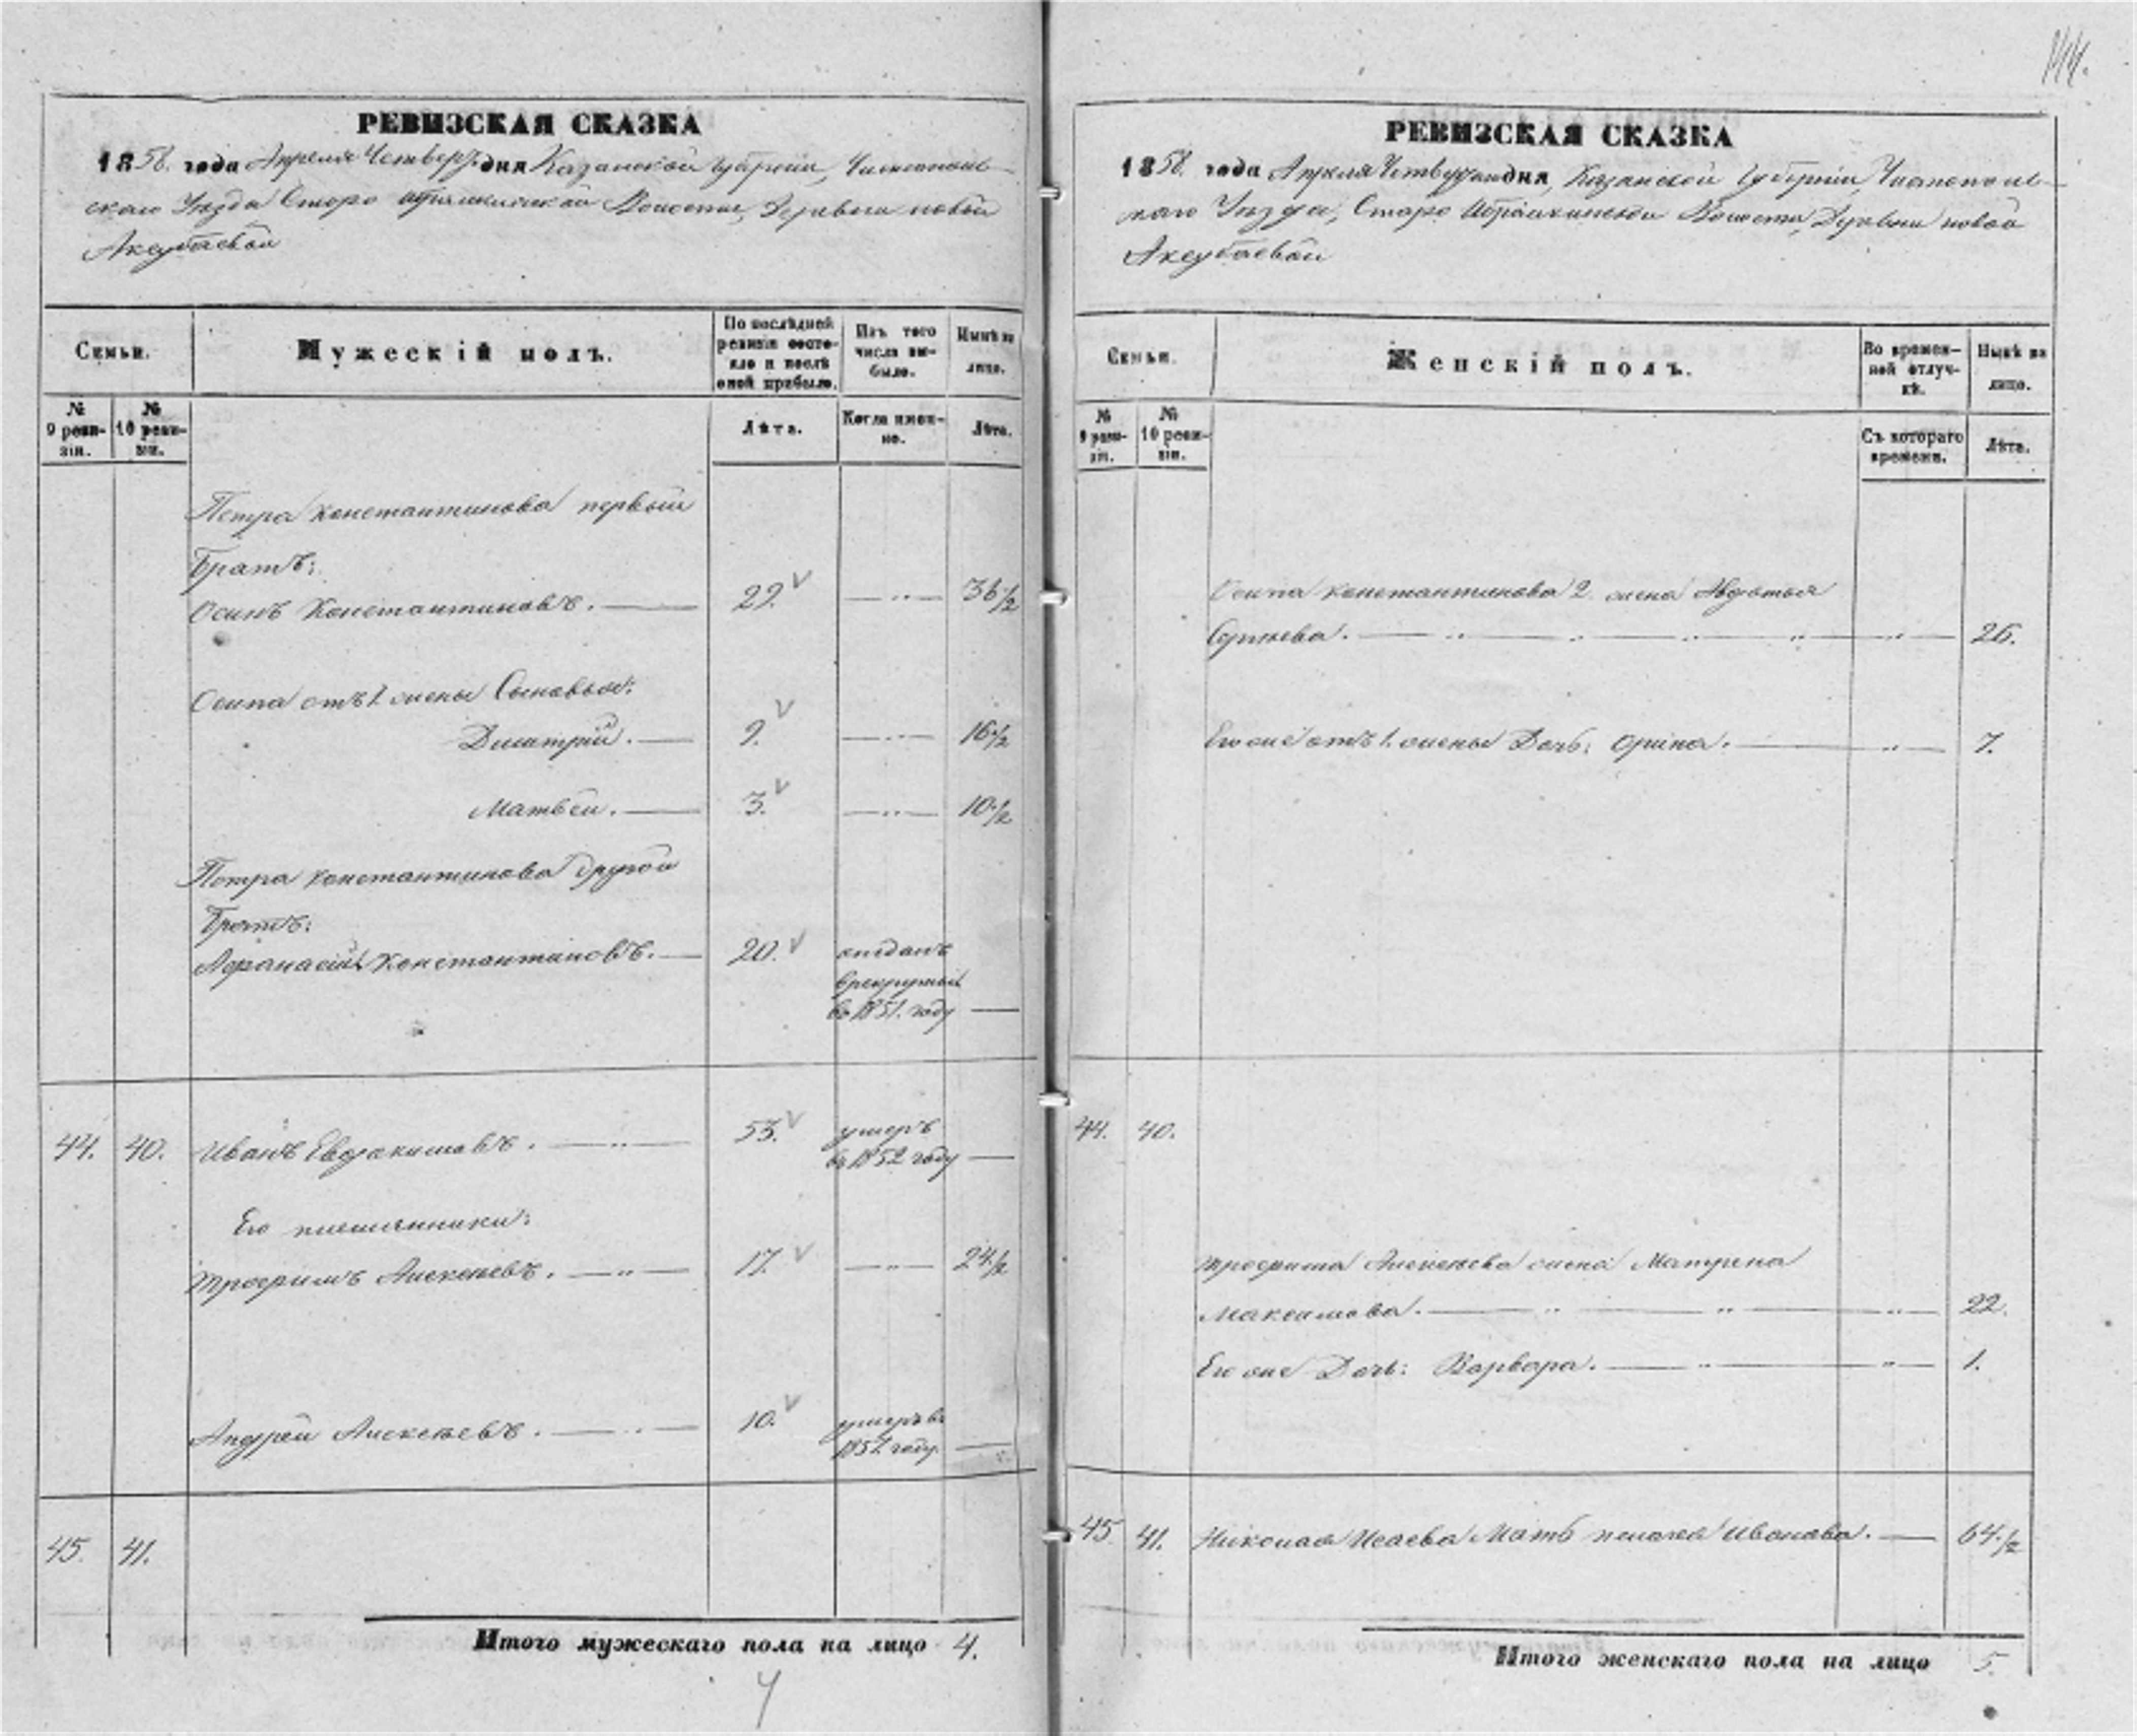 144.
РЕВИЗСКАЯ СКАЗКА
1858. года Апреля Четвер. дня Казанской губернiи, Чистополь-
скаго Уѣзда Старо Ибрайкинской Волости, Деревни новой
Акзубаевой
Семьи.
Мужескiй полъ.
По послѣдней ревизiи состо-яло и послѣ оной прибыло.
Изъ того числа вы-было.
Нынѣ на лицо.
№ 9 реви-зiи.
№ 10 реви-зiи.
Лѣта.
Когда имен-но.
Лѣта.
Петра Константинова первый
Братъ:
Осипъ Константиновъ. 29. 36 1/2
Осипа отъ 1. жены Сыновья:
Дмитрiй. 9. 16 1/2
Матвѣй. 3. 10 1/2
Петра Константинова другой
Братъ:
Афанасiй Константиновъ. 20. отданъ
в рекруты
въ 1851. году
44. 40. Иванъ Евдокимовъ. 53. умеръ
въ 1852 году
Его племянники:
Трофимъ Алексѣевъ. 17. 24 1/2
Андрей Алексѣевъ. 10. умеръ въ
185 году.
45. 41.
Итого мужескаго пола на лицо 4.
4
РЕВИЗСКАЯ СКАЗКА
1858. года Апреля дня, Казанской Губернiи, Чистополь-
скаго Уѣзда, Старо Ибрайкинской Волости, Деревни новой
Акзубаевой
Семьи.
Женскiй полъ.
Во времен-ной отлуч-кѣ.
Нынѣ на лицо.
№ 9 реви-зiи.
№ 10 реви-зiи.
Съ котораго времени.
Лѣта.
Осипа Константинова 2 жена Авдотья
Сергѣева. 26.
Его же отъ 1. жены Дочь: Орина. 7.
44. 40.
Трофима Алексѣева жена Матрена
Максимова. 22.
Его же Дочь: Варвара. 1.
45 41. Николая Исаева Мать Пелагея Иванова. 64 1/2
Итого женскаго пола на лицо 5.